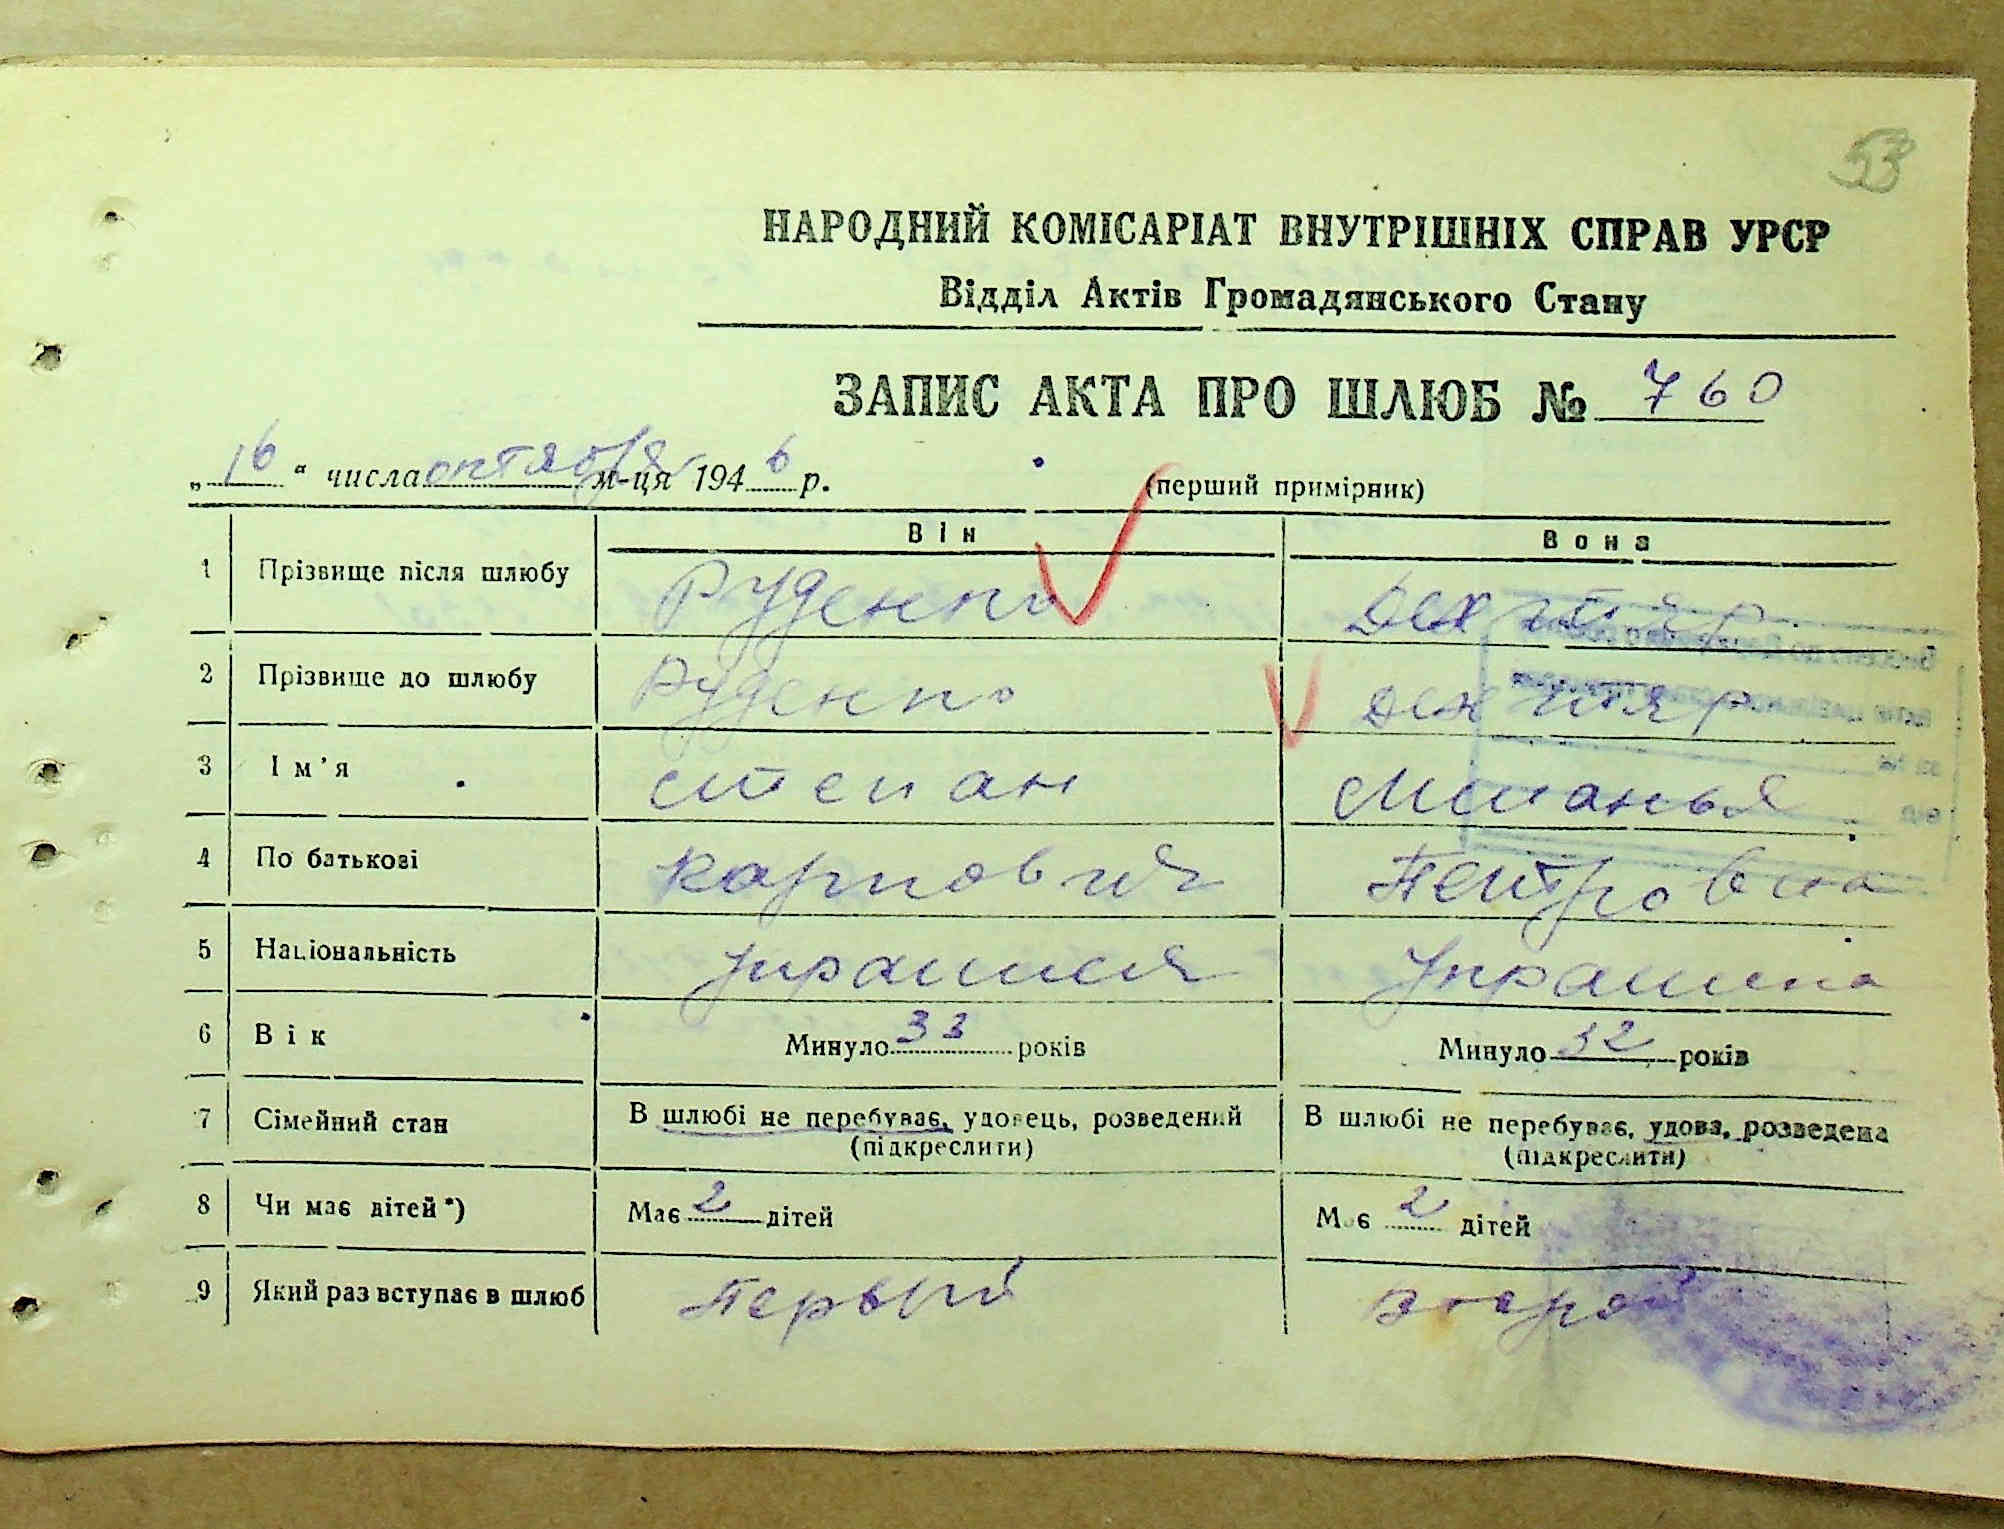 53
НАРОДНИЙ КОМІСАРІАТ ВНУТРІШНІХ СПРАВ УРСР
Відділ Актів Громадянського Стану
ЗАПИС АКТА ПРО ШЛЮБ № 760
„16“ числа октября м-ця 1946 р. (перший примірник)
Він Вона
1 Прізвище після шлюбу Руденко Дехтяр
2 Прізвище до шлюбу Руденко Дехтяр
3 Ім'я Степан Миланья
4 По батькові Карпович Петровна
5 Національність украинец Украинка
6 Вік Минуло 33 років Минуло 32 років
7 Сімейний стан В шлюбі не перебуває, удовець, розведений В шлюбі не перебуває, удова, розведена
(підкреслити) (підкреслити)
8 Чи має дітей*) Має 2 дітей Має 2 дітей
9 Який раз вступає в шлюб Первый второй